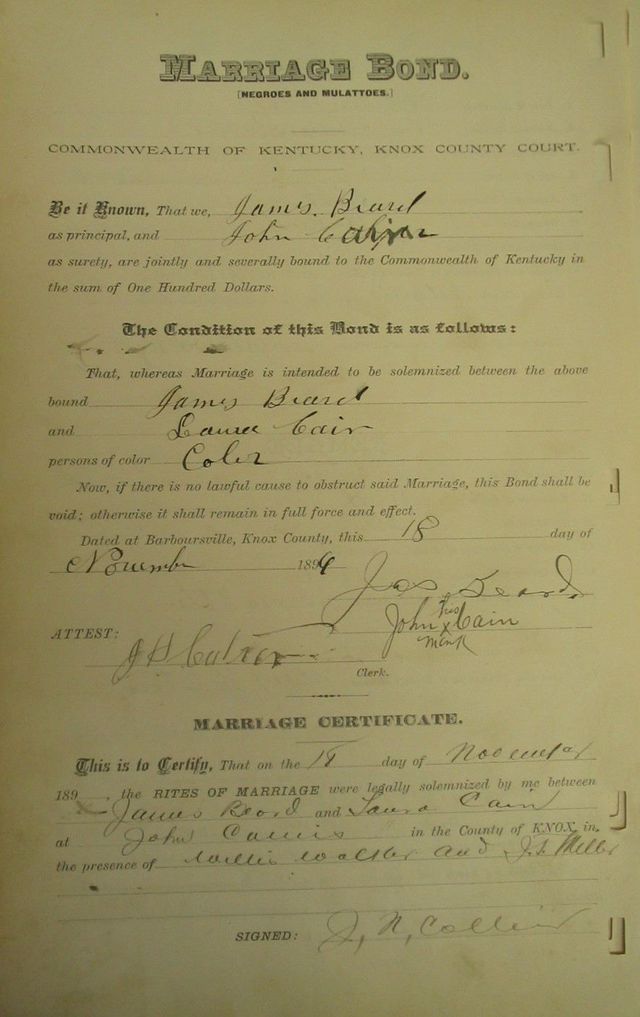 MARRIAGE BOND.
[NEGROES AND MULATTOES.]
COMMONWEALTH OF KENTUCKY, KNOX COUNTY COURT.
Be it Known, That we, James Beard
as principal, and John
as surety, are jointly and severally bound to the Commonwealth of Kentucky in
the sum of One Hundred Dollars.
The Condition of this Bond is as follows:
That, whereas Marriage is intended to be solemnized between the above
bound James Beard
and Laura Cain
persons of color Color
Now, if there is no lawful cause to obstruct said Marriage, this Bond shall be
void; otherwise it shall remain in full force and effect.
Dated at Barboursville, Knox County, this 18 day of
November 189
Jas. Beard
John his x mark Cain
ATTEST:
Clerk.
MARRIAGE CERTIFICATE.
This is to Certify, That on the 18 day of November
189 , the RITES OF MARRIAGE were legally solemnized by me between
James Beard and Laura Cain
at John in the County of KNOX, in
the presence of and
SIGNED: J, N, Collins